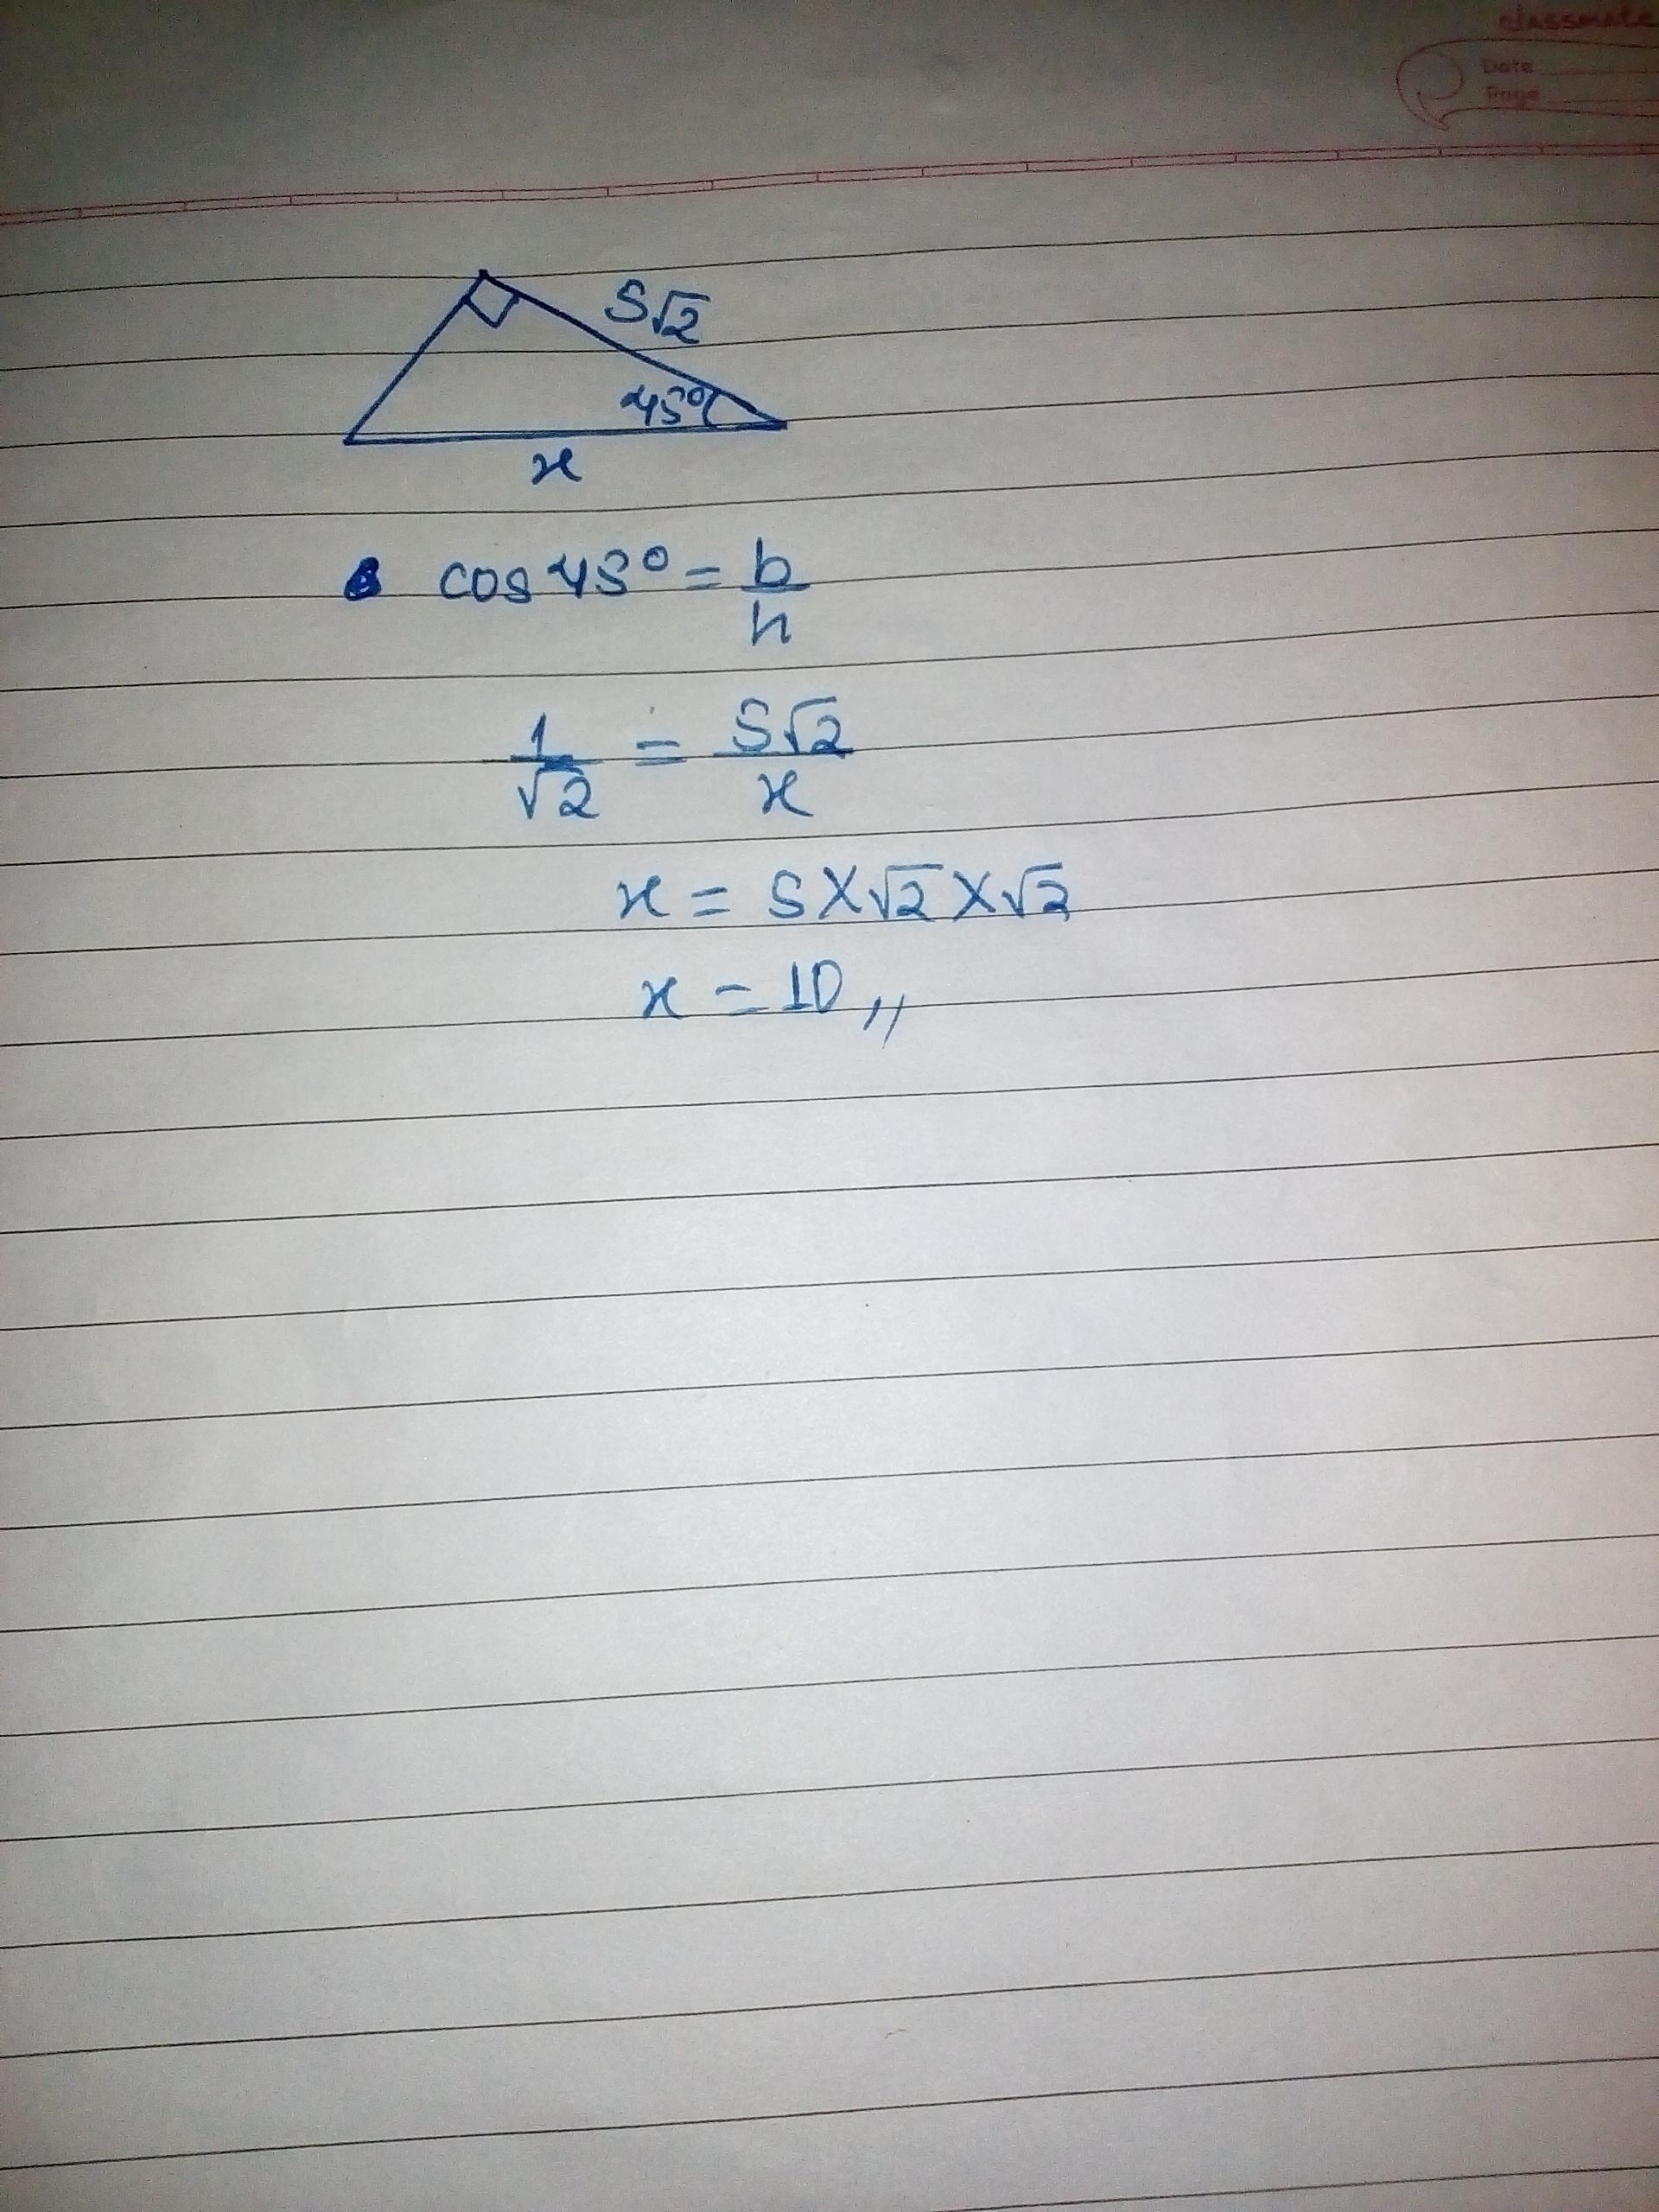 classmate
Date
Page
5√2
45°
x
cos 45° = b/h
1/√2 = 5√2/x
x = 5×√2×√2
x = 10,,